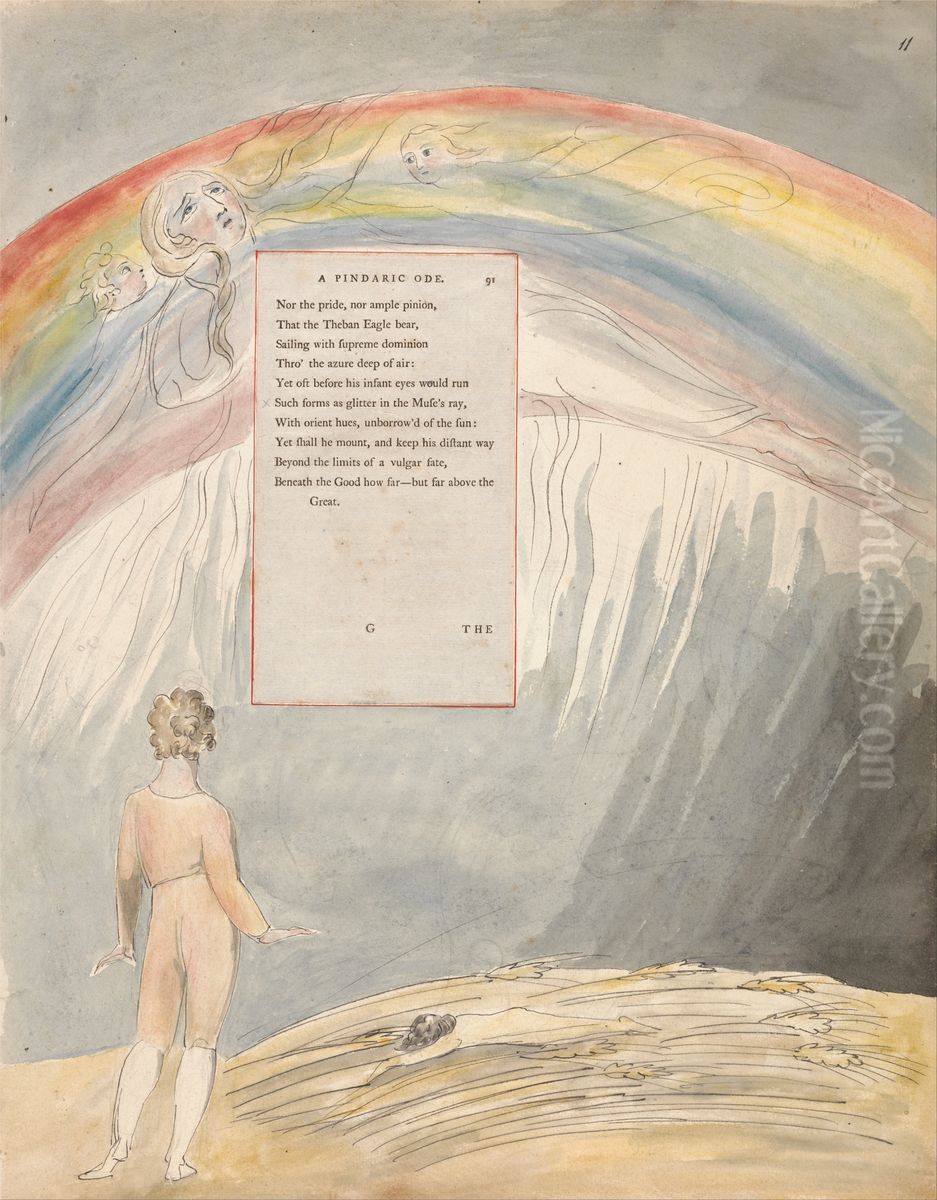 11
A PINDARIC ODE. 91
Nor the pride, nor ample pinion,
That the Theban Eagle bear,
Sailing with ſupreme dominion
Thro' the azure deep of air:
Yet oft before his infant eyes would run
Such forms as glitter in the Muſe's ray,
With orient hues, unborrow'd of the ſun:
Yet ſhall he mount, and keep his diſtant way
Beyond the limits of a vulgar fate,
Beneath the Good how far—but far above the
Great.
G THE
NiceArtGallery.com